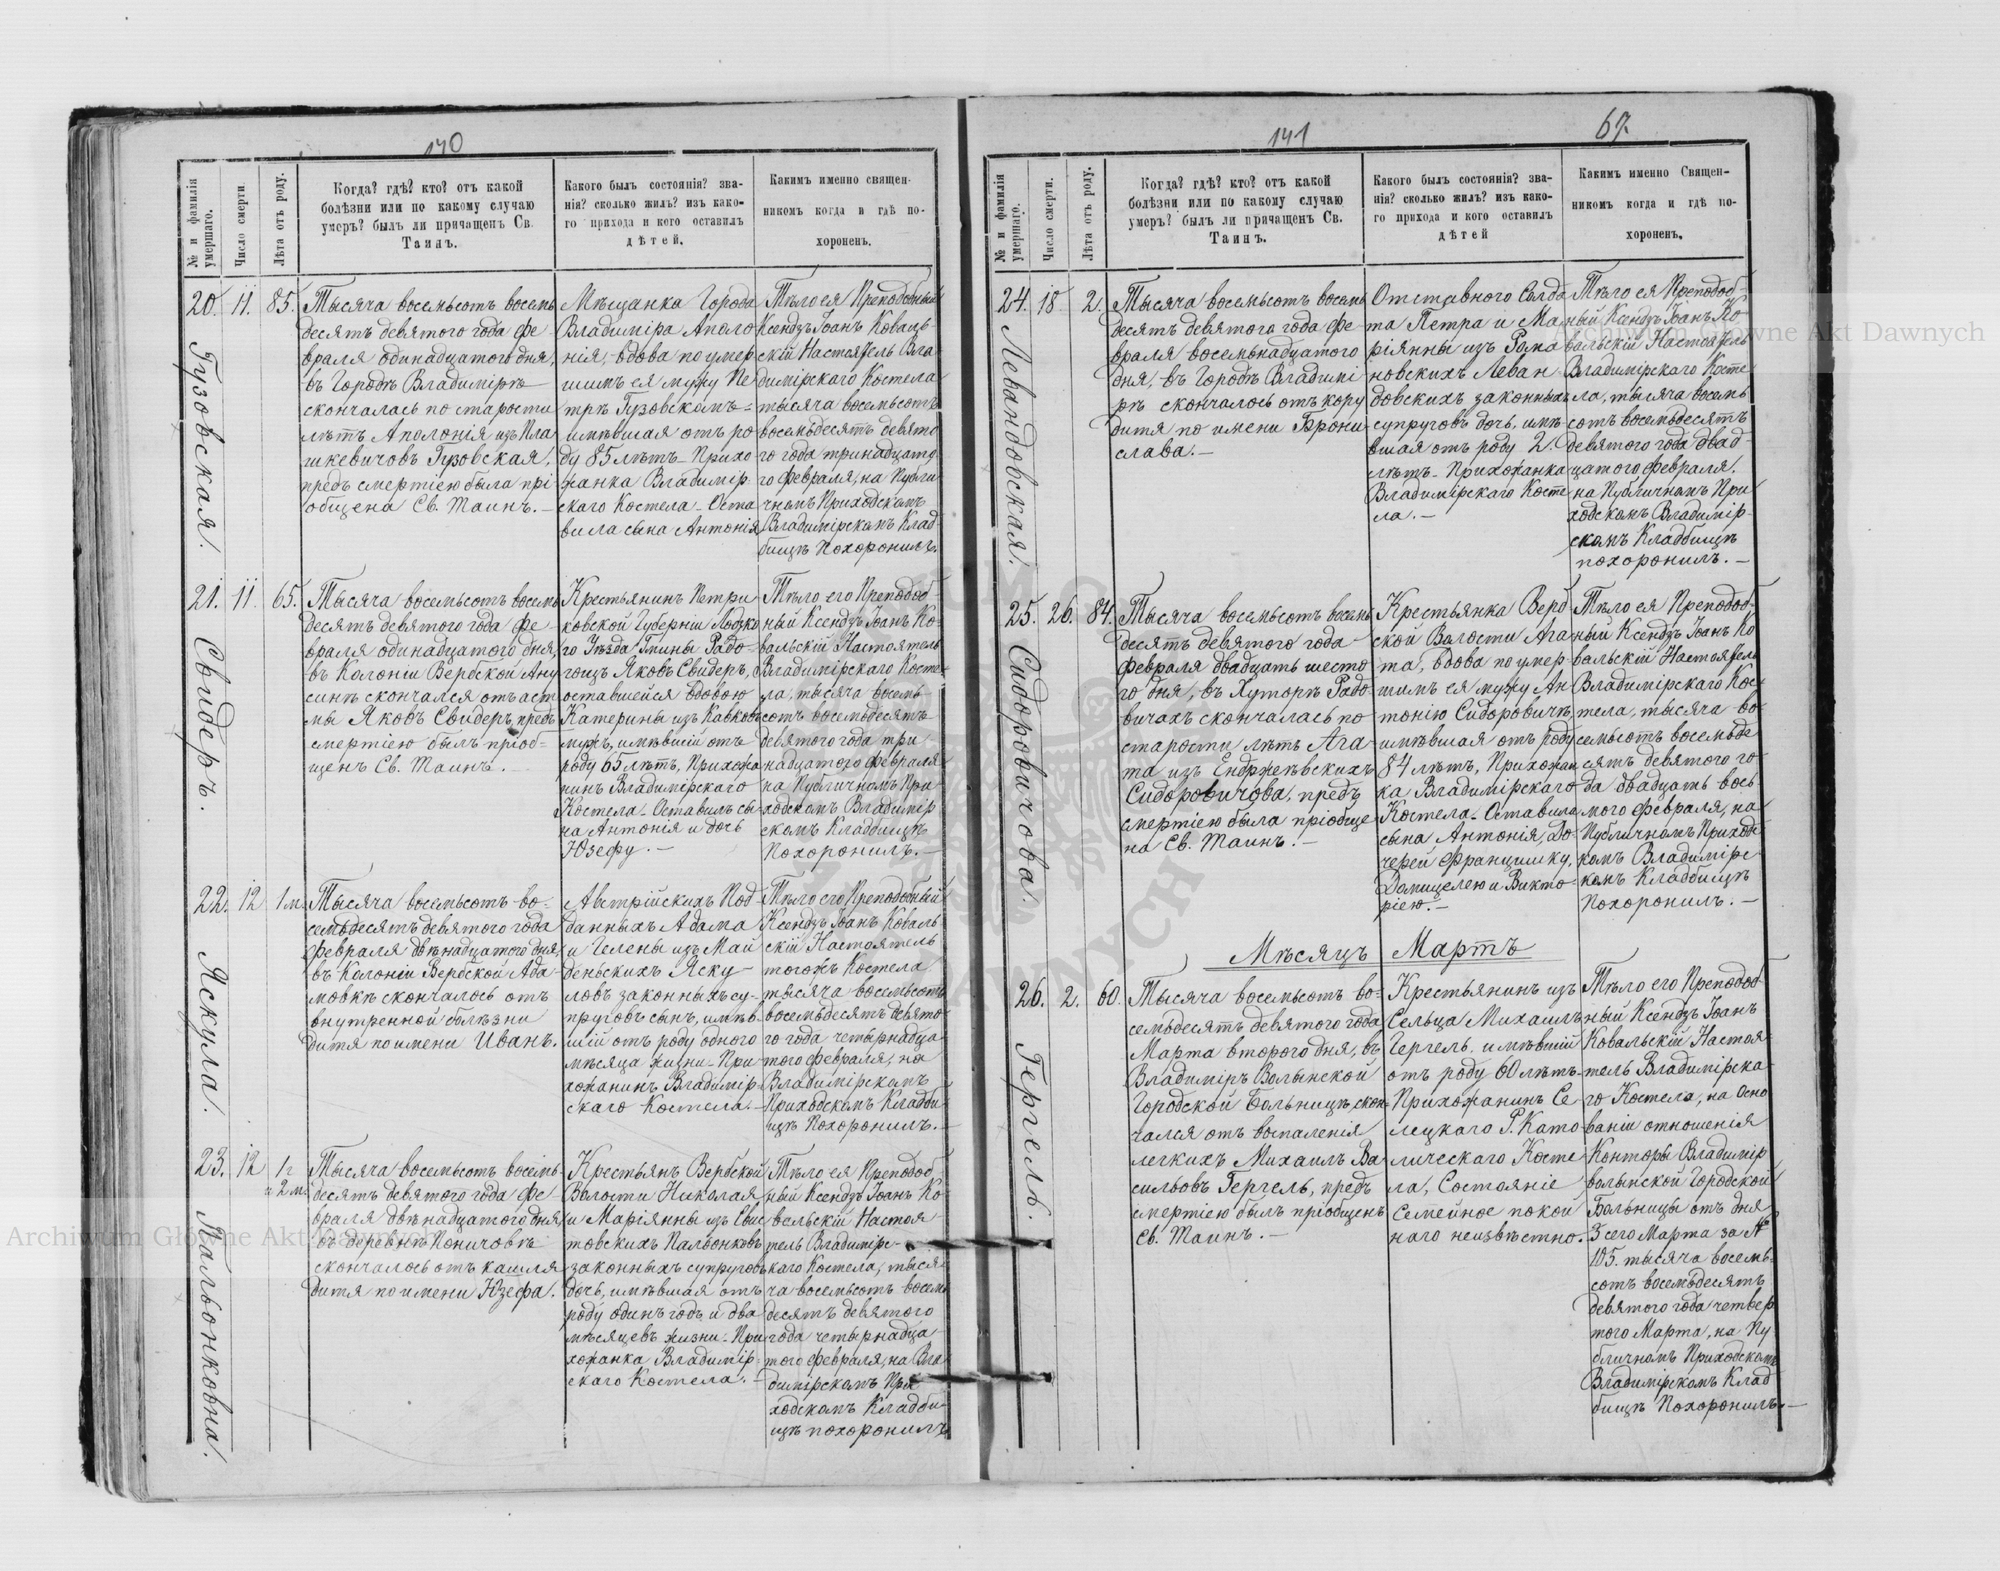 140
№ и фамилія умершаго.
Число смерти.
Лѣта отъ роду.
Когда? гдѣ? кто? отъ какой
болѣзни или по какому случаю
умеръ? былъ ли причащенъ Св.
Таинъ.
Какого былъ состоянія? зва-
нія? сколько жилъ? изъ како-
го прихода и кого оставилъ
дѣтей.
Какимъ именно священ-
никомъ когда и гдѣ по-
хороненъ.
20.
Гузовская.
11.
85.
Тысяча восемьсотъ восемь
десятъ девятого года фе-
враля одинадцатого дня,
въ Городѣ Владимірѣ
скончалась по старости
лѣтъ Аполонія изъ Пла
шкевичовъ Гузовская,
предъ смертіею была прі-
общена Св. Таинъ. –
Мѣщанка Города
Владиміра Аполо
нія, вдова по умер
шимъ ея мужу Пе
трѣ Гузовскомъ –
имѣвшая отъ ро
ду 85 лѣтъ – Прихо
жанка Владимір-
скаго Костела – Оста
вила сына Антонія
Тѣло ея Преподобный
Ксендзъ Іоанъ Коваль
скій Настоятель Вла
димірскаго Костела
тысяча восемьсотъ
восемьдесятъ девято
го года тринадцато
го февраля, на Публи
чномъ Приходскомъ
Владимірскомъ Клад-
бищѣ Похоронилъ.
21.
Свидеръ.
11.
65.
Тысяча восемьсотъ восемь
десятъ девятого года фе-
враля одинадцатого дня,
въ Колоніи Вербской Ану
синѣ скончался отъ аст
мы Яковъ Свидеръ, предъ
смертіею былъ пріоб-
щенъ Св. Таинъ. –
Крестьянинъ Петри
ковской Губерніи Лодзко
го Уѣзда Гмины Радо-
гощъ Яковъ Свидеръ,
оставшейся вдовою
Катерины изъ Кавковъ
мужъ, имѣвшій отъ
роду 65 лѣтъ, Прихожа
нинъ Владимірскаго
Костела – Оставилъ сы-
на Антонія и дочь
Юзефу. –
Тѣло его Преподоб-
ный Ксендзъ Іоанъ Ко-
вальскій Настоятель
Владимірскаго Косте-
ла, тысяча восемь-
сотъ восемьдесятъ
девятого года три
надцатого февраля
на Публичномъ При-
ходскомъ Владимір
скомъ Кладбищѣ
Похоронилъ. –
22.
Яскула.
12
1 м.
Тысяча восемьсотъ во-
семьдесятъ девятого года
февраля двѣнадцатого дня,
въ Колоніи Вербской Ада-
мовкѣ скончалось отъ
внутренной болѣзни
дитя по имени Иванъ.
Австрійскихъ Под-
данныхъ Адама
и Гелены изъ Май
деньскихъ Яску-
ловъ законныхъ су-
пруговъ сынъ, имѣв-
шій отъ роду одного
мѣсяца жизни – При
хожанинъ Владимір-
скаго Костела. –
Тѣло его Преподобный
Ксендзъ Іоанъ Коваль
скій Настоятель
тогожъ Костела
тысяча восемьсотъ
восемьдесятъ девято-
го года четырнадца
того февраля, на
Владимірскомъ
Приходскомъ Кладби
щѣ Похоронилъ. –
23.
Пальонковна.
12
1 г
и 2 м.
Тысяча восемьсотъ восемь-
десятъ девятого года фе-
враля двѣнадцатого дня,
въ деревнѣ Поничовѣ
скончалось отъ кашля
дитя по имени Юзефа.
Крестьянъ Вербской
Волости Николая
и Маріянны изъ Свис
товскихъ Пальонковъ
законныхъ супруговъ
дочь, имѣвшая отъ
роду одинъ годъ и два
мѣсяцевъ жизни – При
хожанка Владимір-
скаго Костела. –
Тѣло ея Преподоб
ный Ксендзъ Іоанъ Ко-
вальскій Настоя-
тель Владимірс-
каго Костела, тыся-
ча восемьсотъ восемь
десятъ девятого
года четырнадца-
того февраля, на Вла
димірскомъ При
ходскомъ Кладби-
щѣ похоронилъ
141
67.
№ и фамилія умершаго.
Число смерти.
Лѣта отъ роду.
Когда? гдѣ? кто? отъ какой
болѣзни или по какому случаю
умеръ? былъ ли причащенъ Св.
Таинъ.
Какого былъ состоянія? зва-
нія? сколько жилъ? изъ како-
го прихода и кого оставилъ
дѣтей
Какимъ именно Священ-
никомъ когда и гдѣ по-
хороненъ.
24.
Левандовская.
18
2.
Тысяча восемьсотъ восемь
десятъ девятого года фе-
враля восемьнадцатого
дня, въ Городѣ Владимі
рѣ скончалось отъ кору
дитя по имени Брони
слава. –
Отставного Солда
та Петра и Ма
ріянны изъ Рома
новскихъ Леван
довскихъ законныхъ
супруговъ дочь, имѣ-
вшая отъ роду 2
лѣтъ – Прихожанка
Владимірскаго Косте
ла. –
Тѣло ея Преподоб-
ный Ксендзъ Іоанъ Ко
вальскій Настоятель
Владимірскаго Косте-
ла, тысяча восемь
сотъ восемьдесятъ
девятого года двад-
цатого февраля,
на Публичномъ При
ходскомъ Владимір-
скомъ Кладбищѣ
похоронилъ. –
25.
Сидоровичова.
26.
84.
Тысяча восемьсотъ восемь
десятъ девятого года
февраля двадцать шесто
го дня, въ Хуторѣ Радо
вичахъ скончалась по
старости лѣтъ Ага-
та изъ Енджеѣвскихъ
Сидоровичова, предъ
смертіею была пріобще
на Св. Таинъ. –
Крестьянка Верб
ской Волости Ага
та, вдова по умер
шимъ ея мужу Ан
тонію Сидоровичѣ,
имѣвшая отъ роду
84 лѣтъ, Прихожан
ка Владимірскаго
Костела – Оставила
сына Антонія, До-
черей Францишку,
Домицелею и Викто-
рію. –
Тѣло ея Преподоб-
ный Ксендзъ Іоанъ Ко
вальскій Настоятель
Владимірскаго Кос-
тела, тысяча во-
семьсотъ восемьде
сятъ девятого го-
да двадцать вось
мого февраля, на
Публичномъ Приходс-
комъ Владимірс
комъ Кладбищѣ
Похоронилъ. –
Мѣсяцъ Мартъ
26.
Гергель.
2.
60.
Тысяча восемьсотъ во-
семьдесятъ девятого года
Марта второго дня, въ
Владиміръ Волынской
Городской Больницѣ, скон-
чался отъ воспаленія
легкихъ Михаилъ Ва
сильовъ Гергель, предъ
смертіею былъ пріобщенъ
Св. Таинъ. –
Крестьянинъ изъ
Сельца Михаилъ
Гергель имѣвшій
отъ роду 60 лѣтъ –
Прихожанинъ Се-
лецкаго Р. Като
лическаго Косте
ла, Состояніе
Семейное покой
наго неизвѣстно.
Тѣло его Преподоб
ный Ксендзъ Іоанъ
Ковальскій Настоя
тель Владимірска-
го Костела, на осно
ваніи отношенія
Конторы Владимір
волынской Городской
Больницы отъ дня
3 сего Марта за №
105. тысяча восемь-
сотъ восемьдесятъ
девятого года четвер
того Марта, на Пу
бличномъ Приходскомъ
Владимірскомъ Клад
бищѣ Похоронилъ. –
Archiwum Główne Akt Dawnych
Archiwum Główne Akt Dawnych